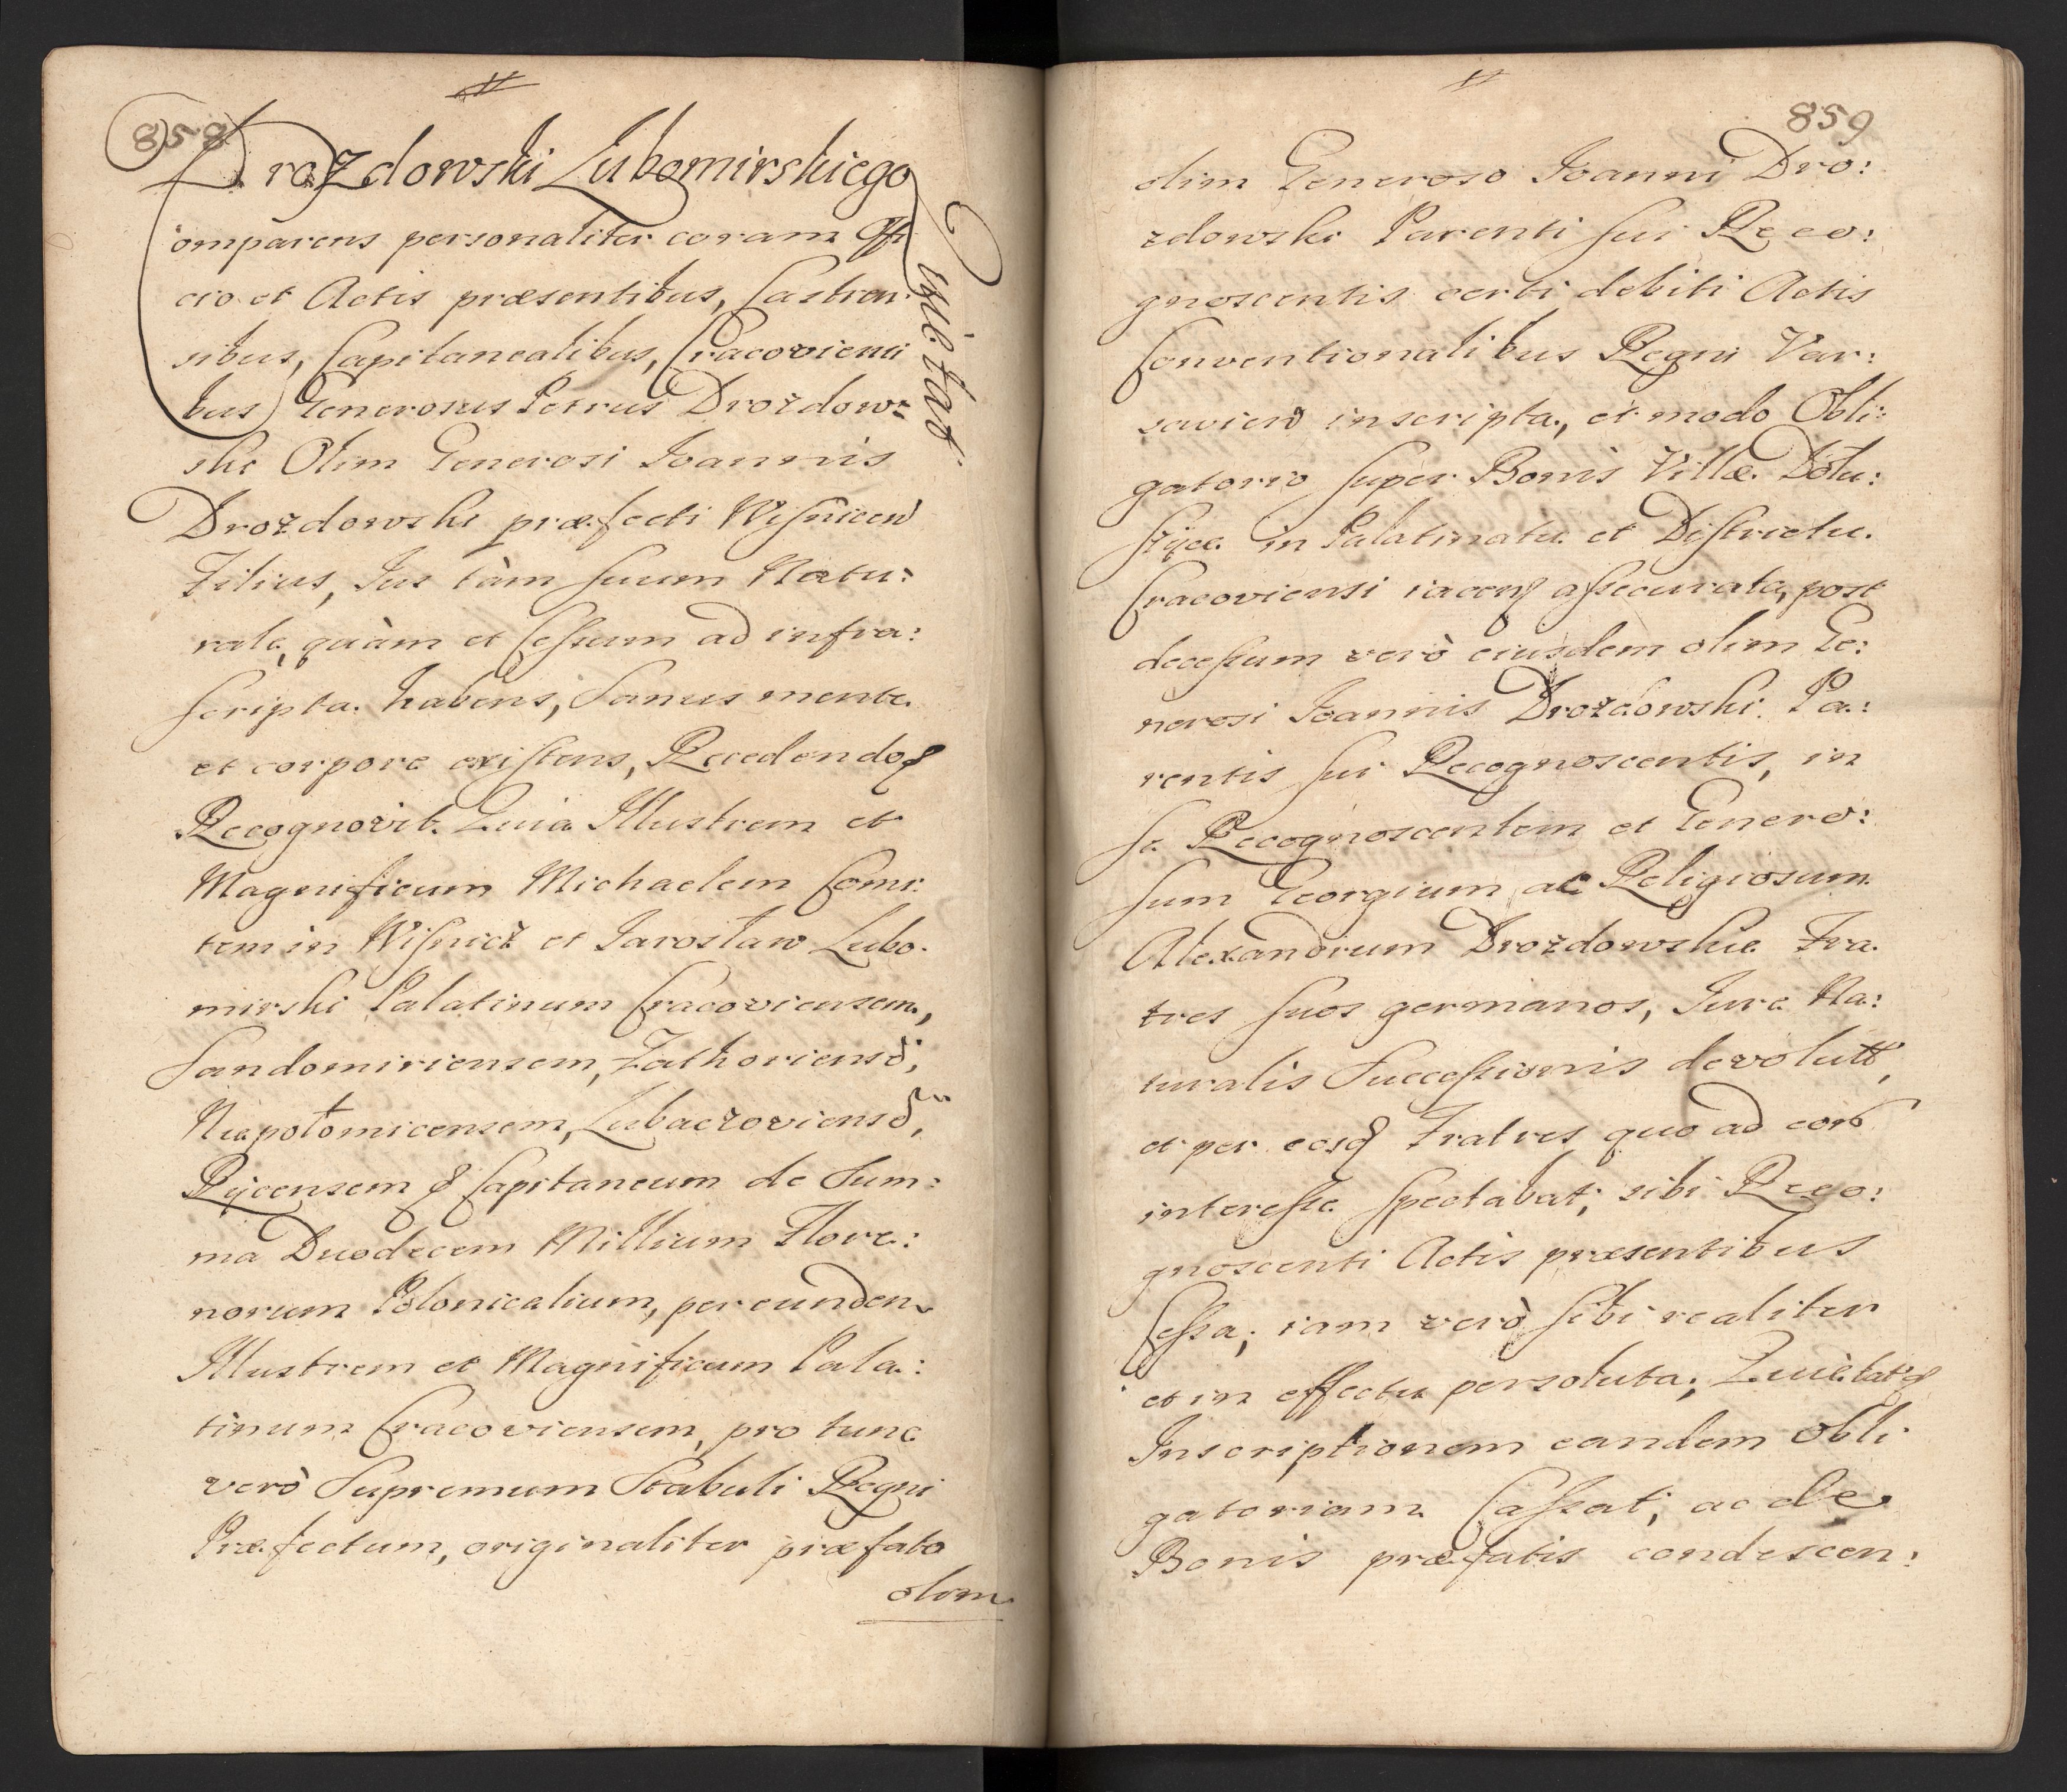 858
Drozdowski Lubomirskiego
Quietat
Comparens personaliter coram Offi
cio et Actis præsentibus, Castren
sibus, Capitanealibus, Cracoviensi
bus Generosus Petrus Drozdow:
ski Olim Generosi Joannis
Drozdowski præfecti Wiſnicen
Filius, Jus tàm ſuum Natu:
rale, quàm et Ceſsum ad infra:
ſcripta habens, Sanus mente
et corpore exiſtens, Recedendoq
Recognovit. Quia Illustrem et
Magnificum Michaelem Comi:
tem in Wiſnicz et Jarosław Lubo:
mirski Palatinum Cracoviensem,
Sandomiriensem, Zathoriens,
Niepołomicensem, Lubaczoviens,
Rijcensem q Capitaneum de Sum:
ma Duodecem Millium Flore:
norum Polonicalium, per eundem
Illustrem et Magnificum Pala:
tinum Cracoviensem, pro tunc
verò Supremum Stabuli Regni
Præfectum, originaliter præfato
olim
859
olim Generoso Joanni Dro:
zdowski Parenti ſui Reco:
gnoscentis certi debiti Actis
Conventionalibus Regni Var:
savien inscripta, et modo Obli:
gatorio ſuper Bonis Villæ Dołu:
ſzÿce in Palatinatu et Diſtrictu
Cracoviensi iacen aſsecurata, post
deceſsum verò eiusdem olim Ge:
nerosi Joannis Drozdowski Pa:
rentis ſui Recognoscentis, in
ſe Recognoscentem et Genero:
ſum Georgium ac Religiosum
Alexandrum Drozdowskie Fra:
tres ſuos germanos, Jure Na:
turalis Succeſsionis devolut,
et per eosq Fratres quo ad eor
intereſse ſpectabat, sibi Reco:
gnoscenti Actis præsentibus
Ceſsa, iam verò ſibi realiter
et in effectu persoluta, Quietatq
Inscriptionem eandem Obli
gatoriam Caſsat, ac de
Bonis præfatis condescen: